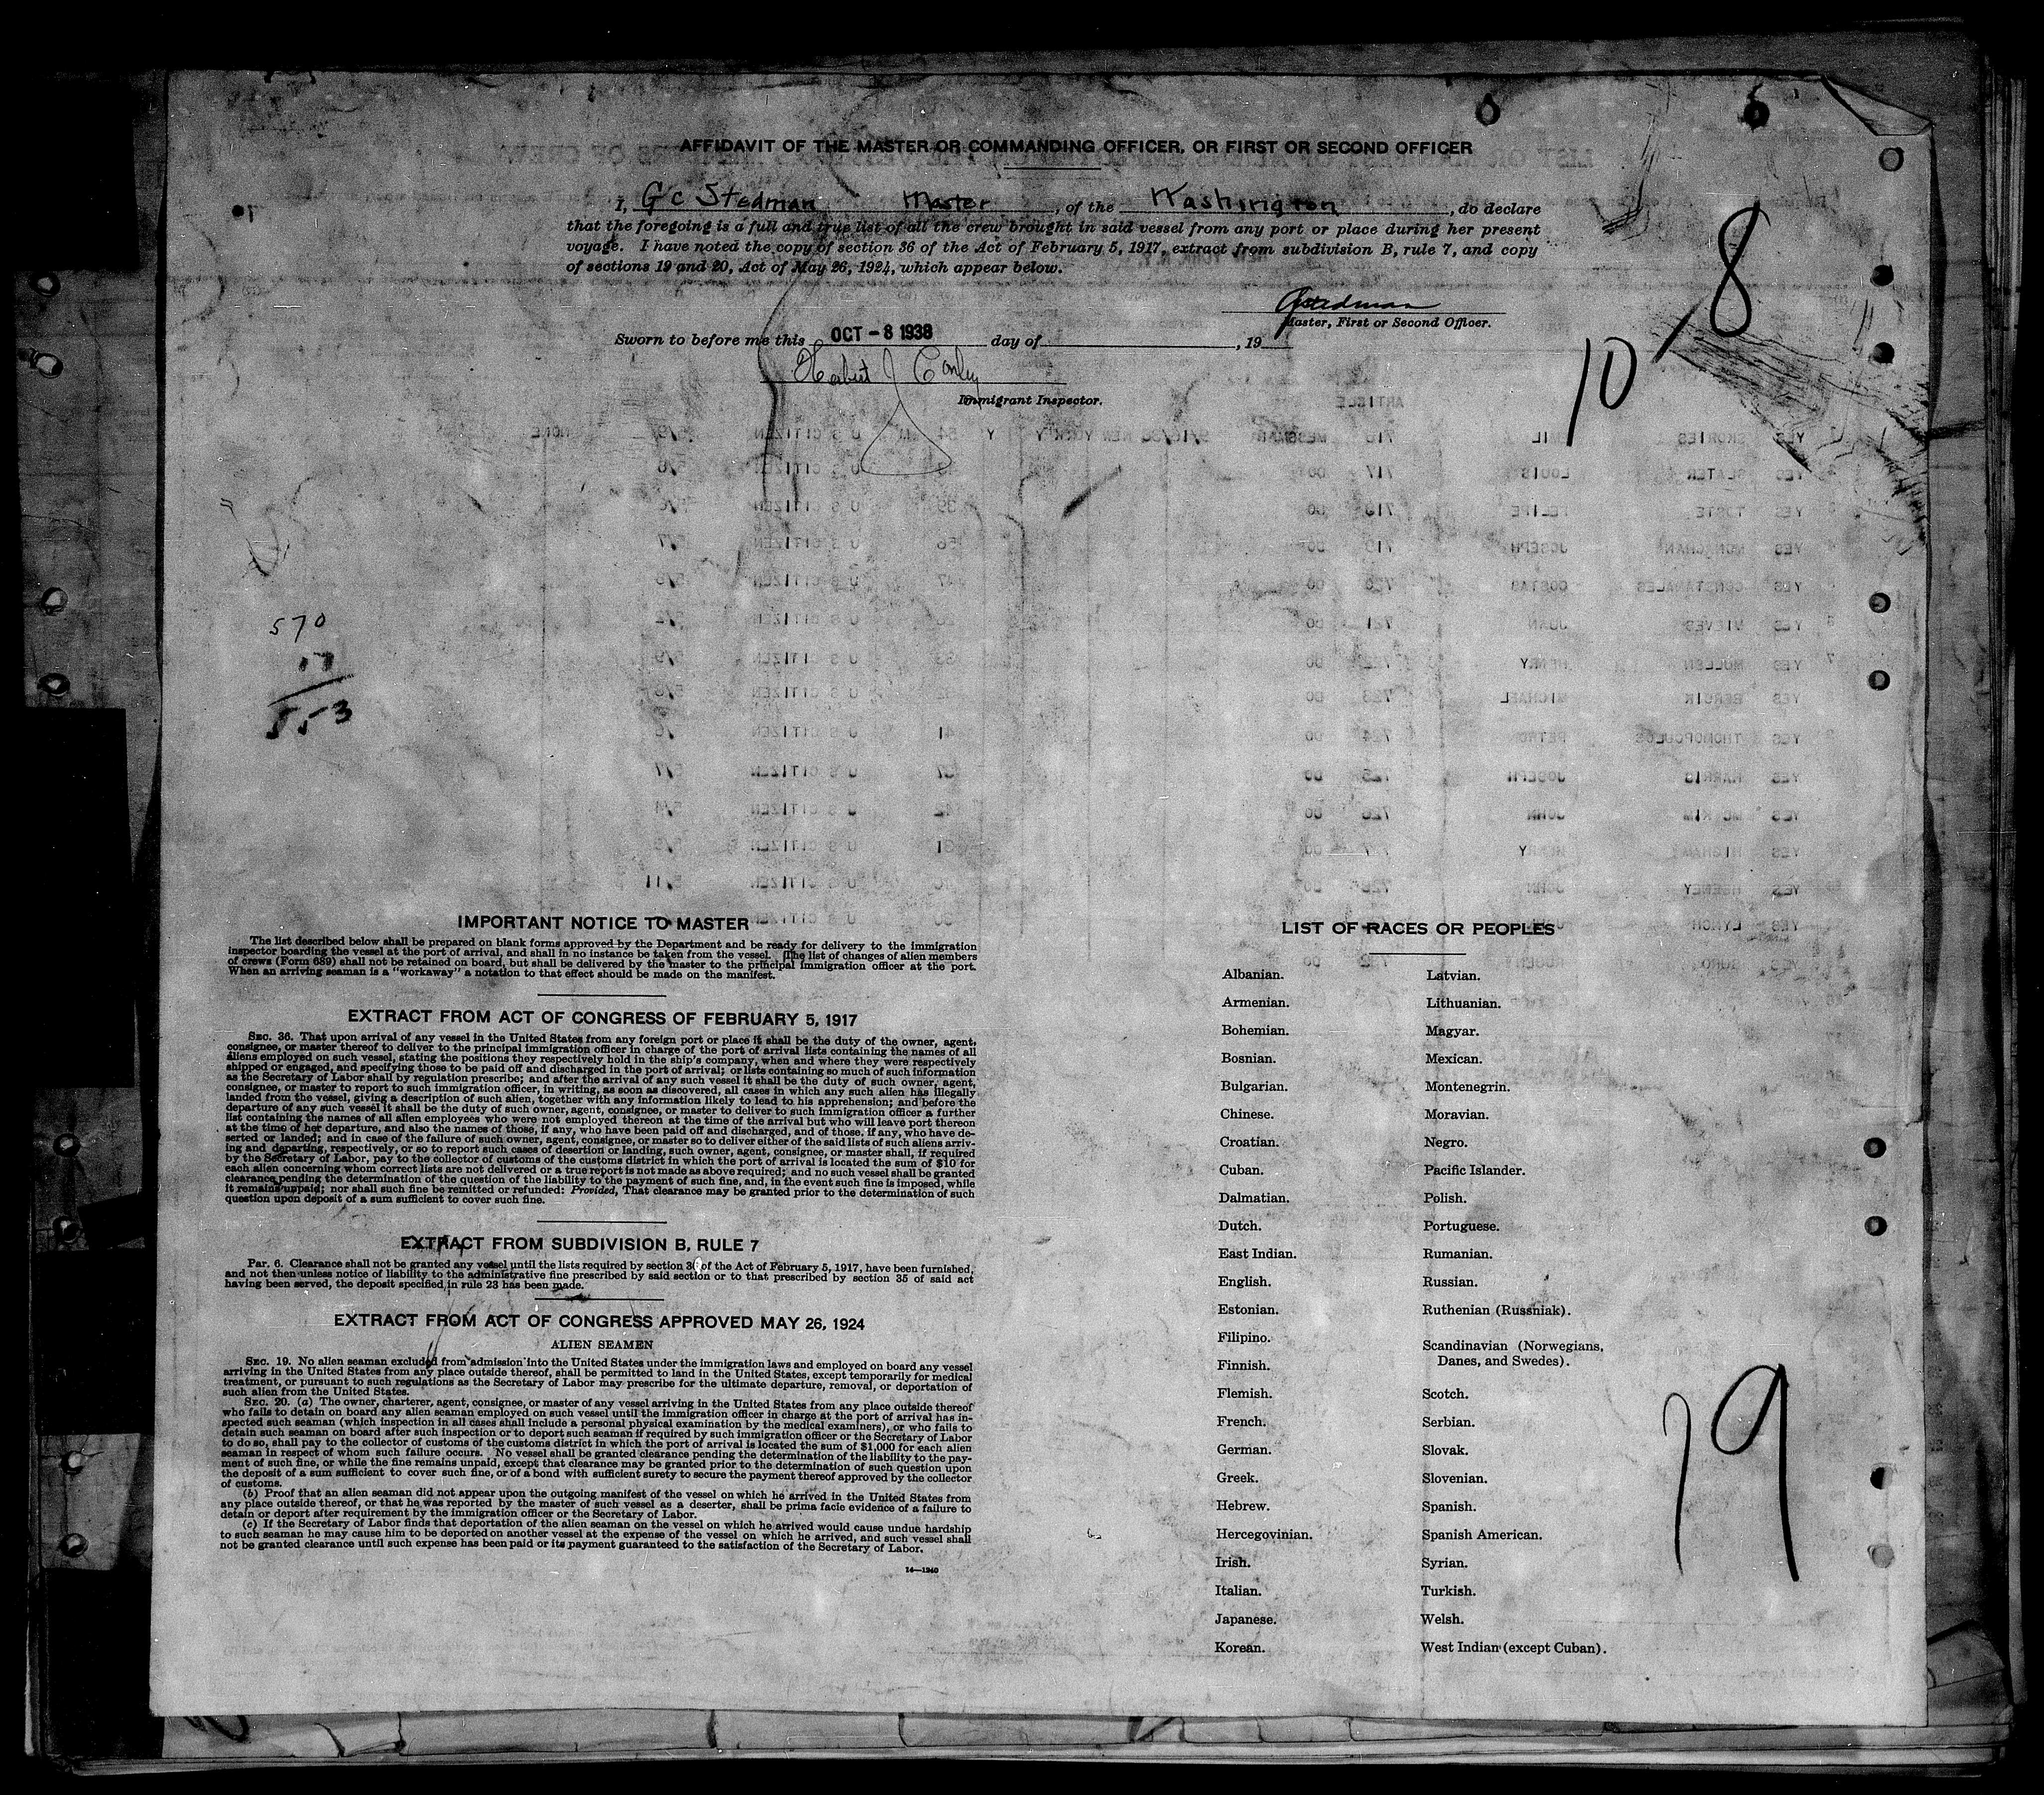 AFFIDAVIT OF THE MASTER OR COMMANDING OFFICER, OR FIRST OR SECOND OFFICER
I, G C Stedman Master, of the Washington, do declare
that the foregoing is a full and true list of all the crew brought in said vessel from any port or place during her present
voyage. I have noted the copy of section 36 of the Act of February 5, 1917, extract from subdivision B, rule 7, and copy
of sections 19 and 20, Act of May 26, 1924, which appear below.
GCStedman
Master, First or Second Officer.
Sworn to before me this OCT - 8 1938 day of , 19
Herbert J Conley
Immigrant Inspector.
10/8
570
17
553
IMPORTANT NOTICE TO MASTER
The list described below shall be prepared on blank forms approved by the Department and be ready for delivery to the immigration
inspector boarding the vessel at the port of arrival, and shall in no instance be taken from the vessel. The list of changes of alien members
of crews (Form 689) shall not be retained on board, but shall be delivered by the master to the principal immigration officer at the port.
When an arriving seaman is a "workaway" a notation to that effect should be made on the manifest.
EXTRACT FROM ACT OF CONGRESS OF FEBRUARY 5, 1917
SEC. 36. That upon arrival of any vessel in the United States from any foreign port or place it shall be the duty of the owner, agent,
consignee, or master thereof to deliver to the principal immigration officer in charge of the port of arrival lists containing the names of all
aliens employed on such vessel, stating the positions they respectively hold in the ship's company, when and where they were respectively
shipped or engaged, and specifying those to be paid off and discharged in the port of arrival; or lists containing so much of such information
as the Secretary of Labor shall by regulation prescribe; and after the arrival of any such vessel it shall be the duty of such owner, agent,
consignee, or master to report to such immigration officer, in writing, as soon as discovered, all cases in which any such alien has illegally
landed from the vessel, giving a description of such alien, together with any information likely to lead to his apprehension; and before the
departure of any such vessel it shall be the duty of such owner, agent, consignee, or master to deliver to such immigration officer a further
list containing the names of all alien employees who were not employed thereon at the time of the arrival but who will leave port thereon
at the time of her departure, and also the names of those, if any, who have been paid off and discharged, and of those, if any, who have de-
serted or landed; and in case of the failure of such owner, agent, consignee, or master so to deliver either of the said lists of such aliens arriv-
ing and departing, respectively, or so to report such cases of desertion or landing, such owner, agent, consignee, or master shall, if required
by the Secretary of Labor, pay to the collector of customs of the customs district in which the port of arrival is located the sum of $10 for
each alien concerning whom correct lists are not delivered or a true report is not made as above required; and no such vessel shall be granted
clearance pending the determination of the question of the liability to the payment of such fine, and, in the event such fine is imposed, while
it remains unpaid; nor shall such fine be remitted or refunded: Provided, That clearance may be granted prior to the determination of such
question upon deposit of a sum sufficient to cover such fine.
EXTRACT FROM SUBDIVISION B, RULE 7
Par. 6. Clearance shall not be granted any vessel until the lists required by section 36 of the Act of February 5, 1917, have been furnished,
and not then unless notice of liability to the administrative fine prescribed by said section or to that prescribed by section 35 of said act
having been served, the deposit specified in rule 23 has been made.
EXTRACT FROM ACT OF CONGRESS APPROVED MAY 26, 1924
ALIEN SEAMEN
SEC. 19. No alien seaman excluded from admission into the United States under the immigration laws and employed on board any vessel
arriving in the United States from any place outside thereof, shall be permitted to land in the United States, except temporarily for medical
treatment, or pursuant to such regulations as the Secretary of Labor may prescribe for the ultimate departure, removal, or deportation of
such alien from the United States.
SEC. 20. (a) The owner, charterer, agent, consignee, or master of any vessel arriving in the United States from any place outside thereof
who fails to detain on board any alien seaman employed on such vessel until the immigration officer in charge at the port of arrival has in-
spected such seaman (which inspection in all cases shall include a personal physical examination by the medical examiners), or who fails to
detain such seaman on board after such inspection or to deport such seaman if required by such immigration officer or the Secretary of Labor
to do so, shall pay to the collector of customs of the customs district in which the port of arrival is located the sum of $1,000 for each alien
seaman in respect of whom such failure occurs. No vessel shall be granted clearance pending the determination of the liability to the pay-
ment of such fine, or while the fine remains unpaid, except that clearance may be granted prior to the determination of such question upon
the deposit of a sum sufficient to cover such fine, or of a bond with sufficient surety to secure the payment thereof approved by the collector
of customs.
(b) Proof that an alien seaman did not appear upon the outgoing manifest of the vessel on which he arrived in the United States from
any place outside thereof, or that he was reported by the master of such vessel as a deserter, shall be prima facie evidence of a failure to
detain or deport after requirement by the immigration officer or the Secretary of Labor.
(c) If the Secretary of Labor finds that deportation of the alien seaman on the vessel on which he arrived would cause undue hardship
to such seaman he may cause him to be deported on another vessel at the expense of the vessel on which he arrived, and such vessel shall
not be granted clearance until such expense has been paid or its payment guaranteed to the satisfaction of the Secretary of Labor.
14—1240
LIST OF RACES OR PEOPLES
Albanian.
Armenian.
Bohemian.
Bosnian.
Bulgarian.
Chinese.
Croatian.
Cuban.
Dalmatian.
Dutch.
East Indian.
English.
Estonian.
Filipino.
Finnish.
Flemish.
French.
German.
Greek.
Hebrew.
Hercegovinian.
Irish.
Italian.
Japanese.
Korean.
Latvian.
Lithuanian.
Magyar.
Mexican.
Montenegrin.
Moravian.
Negro.
Pacific Islander.
Polish.
Portuguese.
Rumanian.
Russian.
Ruthenian (Russniak).
Scandinavian (Norwegians,
Danes, and Swedes).
Scotch.
Serbian.
Slovak.
Slovenian.
Spanish.
Spanish American.
Syrian.
Turkish.
Welsh.
West Indian (except Cuban).
19